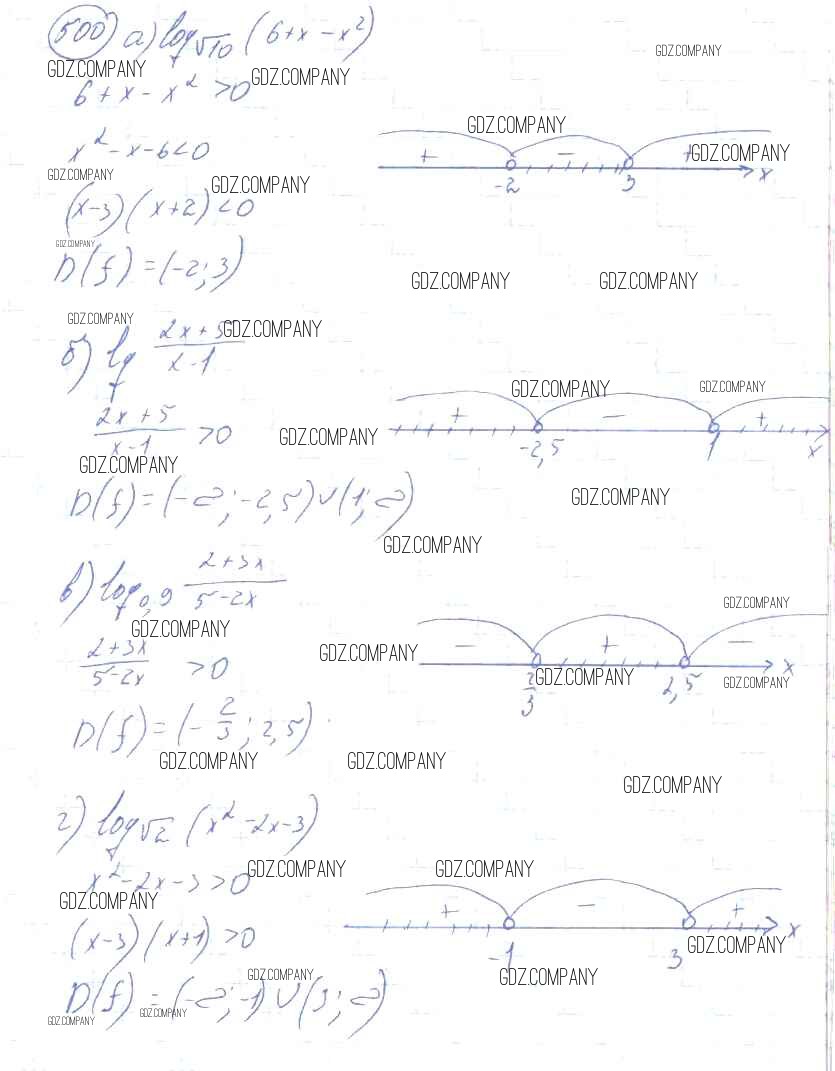 500 а) log√10 (6+x-x²)
GDZ.COMPANY
GDZ.COMPANY GDZ.COMPANY
6+x-x²>0
GDZ.COMPANY
x²-x-6<0
+ - + GDZ.COMPANY
-2 3 x
GDZ.COMPANY GDZ.COMPANY
(x-3)(x+2)<0
GDZ.COMPANY
D(f)=(-2;3)
GDZ.COMPANY GDZ.COMPANY
GDZ.COMPANY GDZ.COMPANY
б) lg (2x+5)/(x-1)
GDZ.COMPANY GDZ.COMPANY
+ - +
-2,5 1 x
(2x+5)/(x-1) >0
GDZ.COMPANY
GDZ.COMPANY
D(f)=(-∞;-2,5)∪(1;∞)
GDZ.COMPANY
GDZ.COMPANY
в) log0,9 (2+3x)/(5-2x)
GDZ.COMPANY
GDZ.COMPANY
- + -
GDZ.COMPANY
(2+3x)/(5-2x) >0
2/3 2,5 x
GDZ.COMPANY GDZ.COMPANY
D(f)=(-2/3;2,5)
GDZ.COMPANY GDZ.COMPANY
GDZ.COMPANY
г) log√2 (x²-2x-3)
GDZ.COMPANY GDZ.COMPANY
x²-2x-3>0
GDZ.COMPANY
+ - +
-1 3 x
(x-3)(x+1)>0
GDZ.COMPANY
GDZ.COMPANY GDZ.COMPANY
D(f)=(-∞;-1)∪(3;∞)
GDZ.COMPANY GDZ.COMPANY